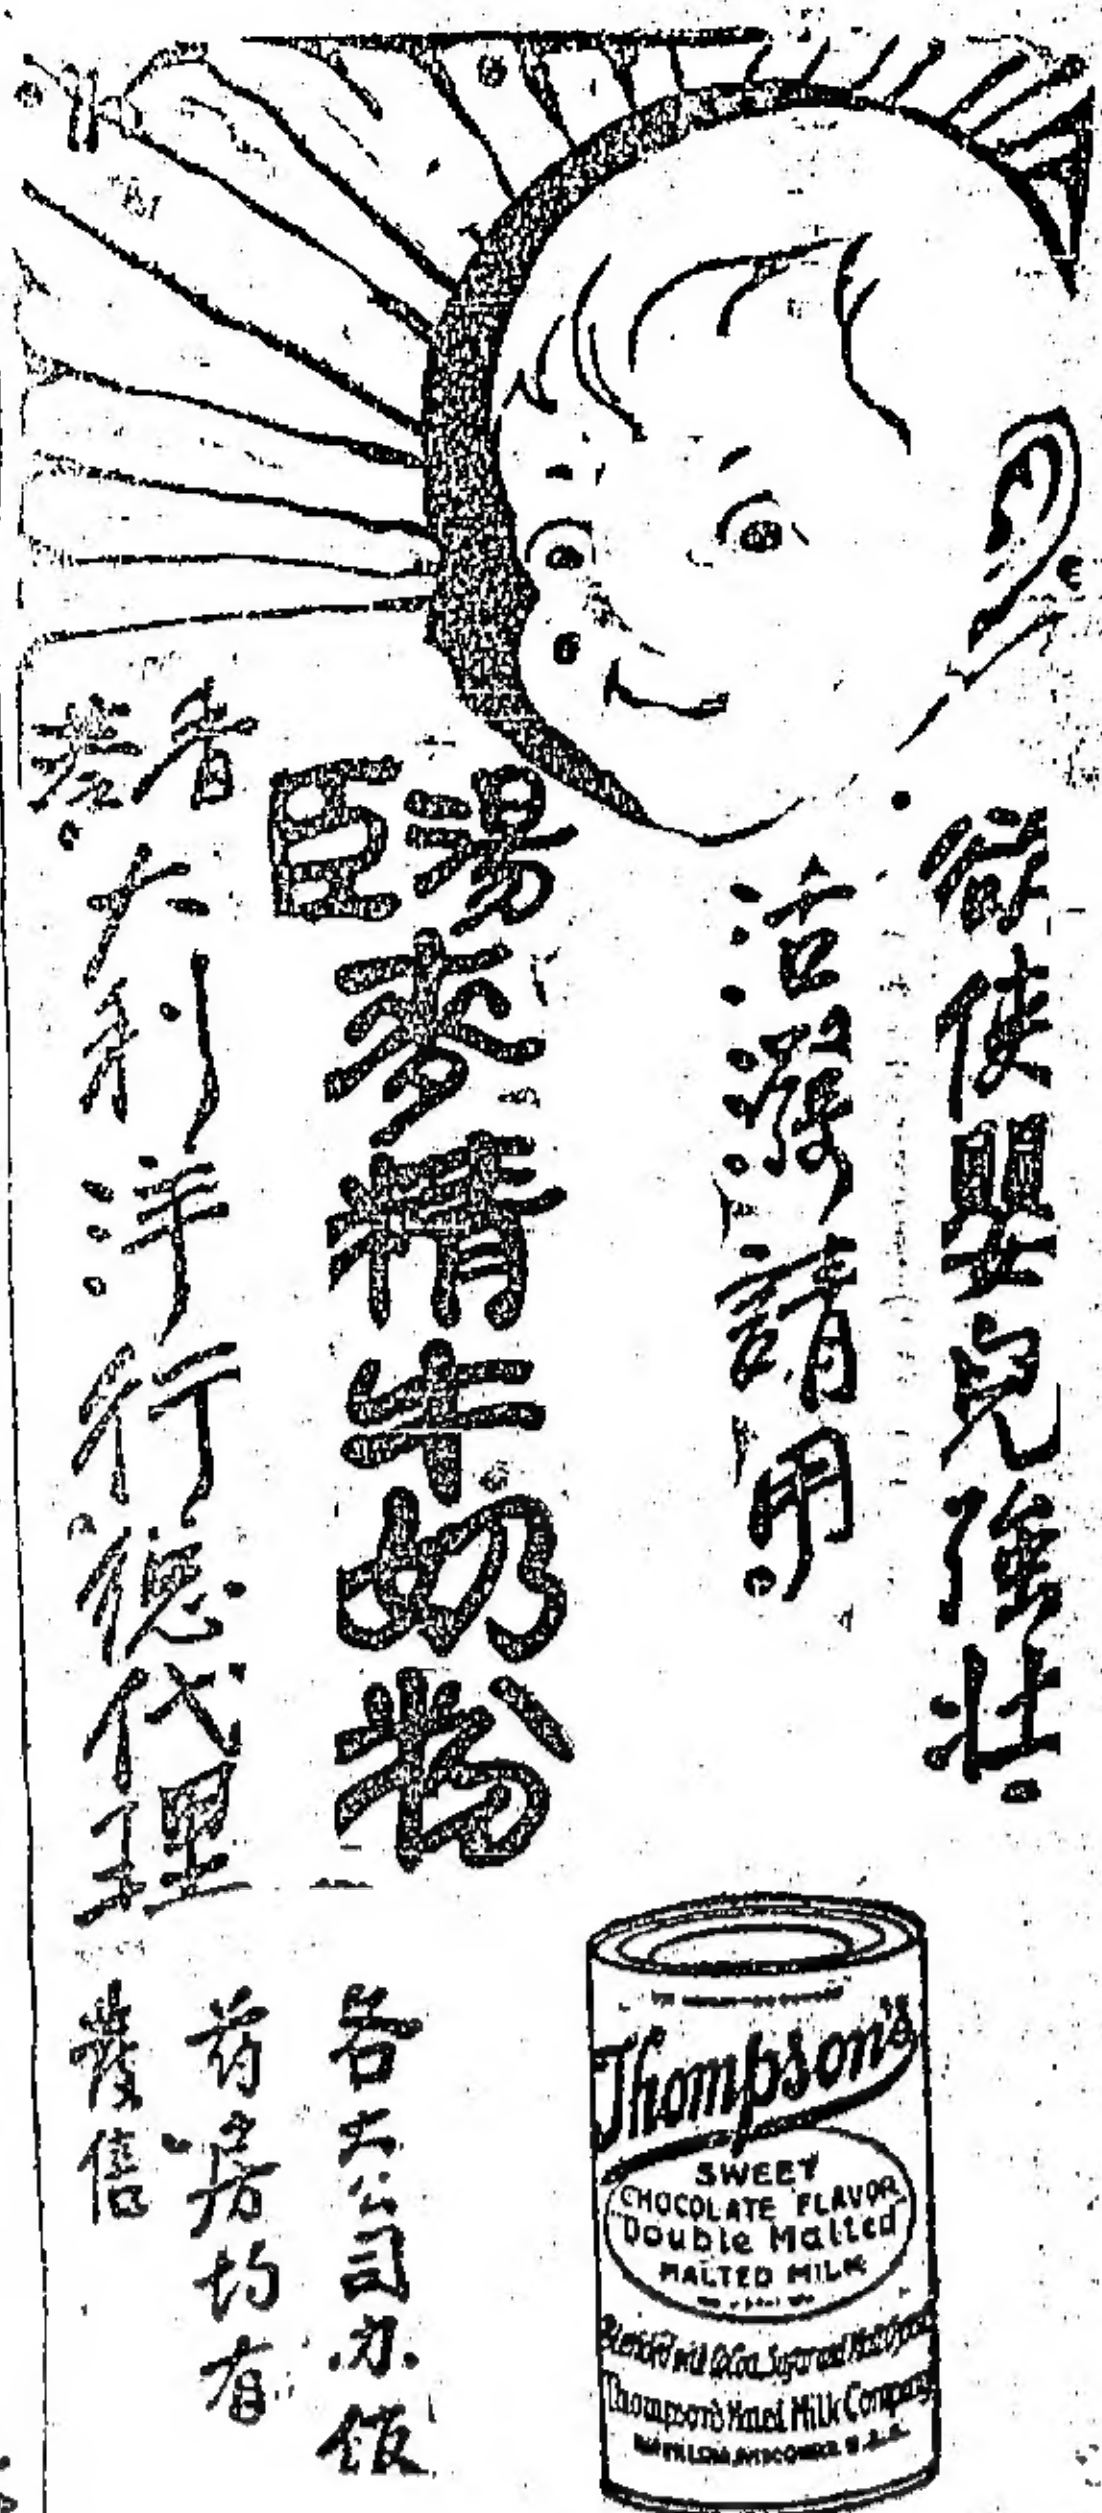 欲使嬰兒強壯
活潑請用
湯臣麥精牛奶粉
香港大利洋行總代理
各大公司办館
药房均有
發售
Thompson's
SWEET
CHOCOLATE FLAVOR
Double Malted
MALTED MILK
Blended with Cocoa, Sugar and
Thompson's Malted Milk Company
U.S.A.